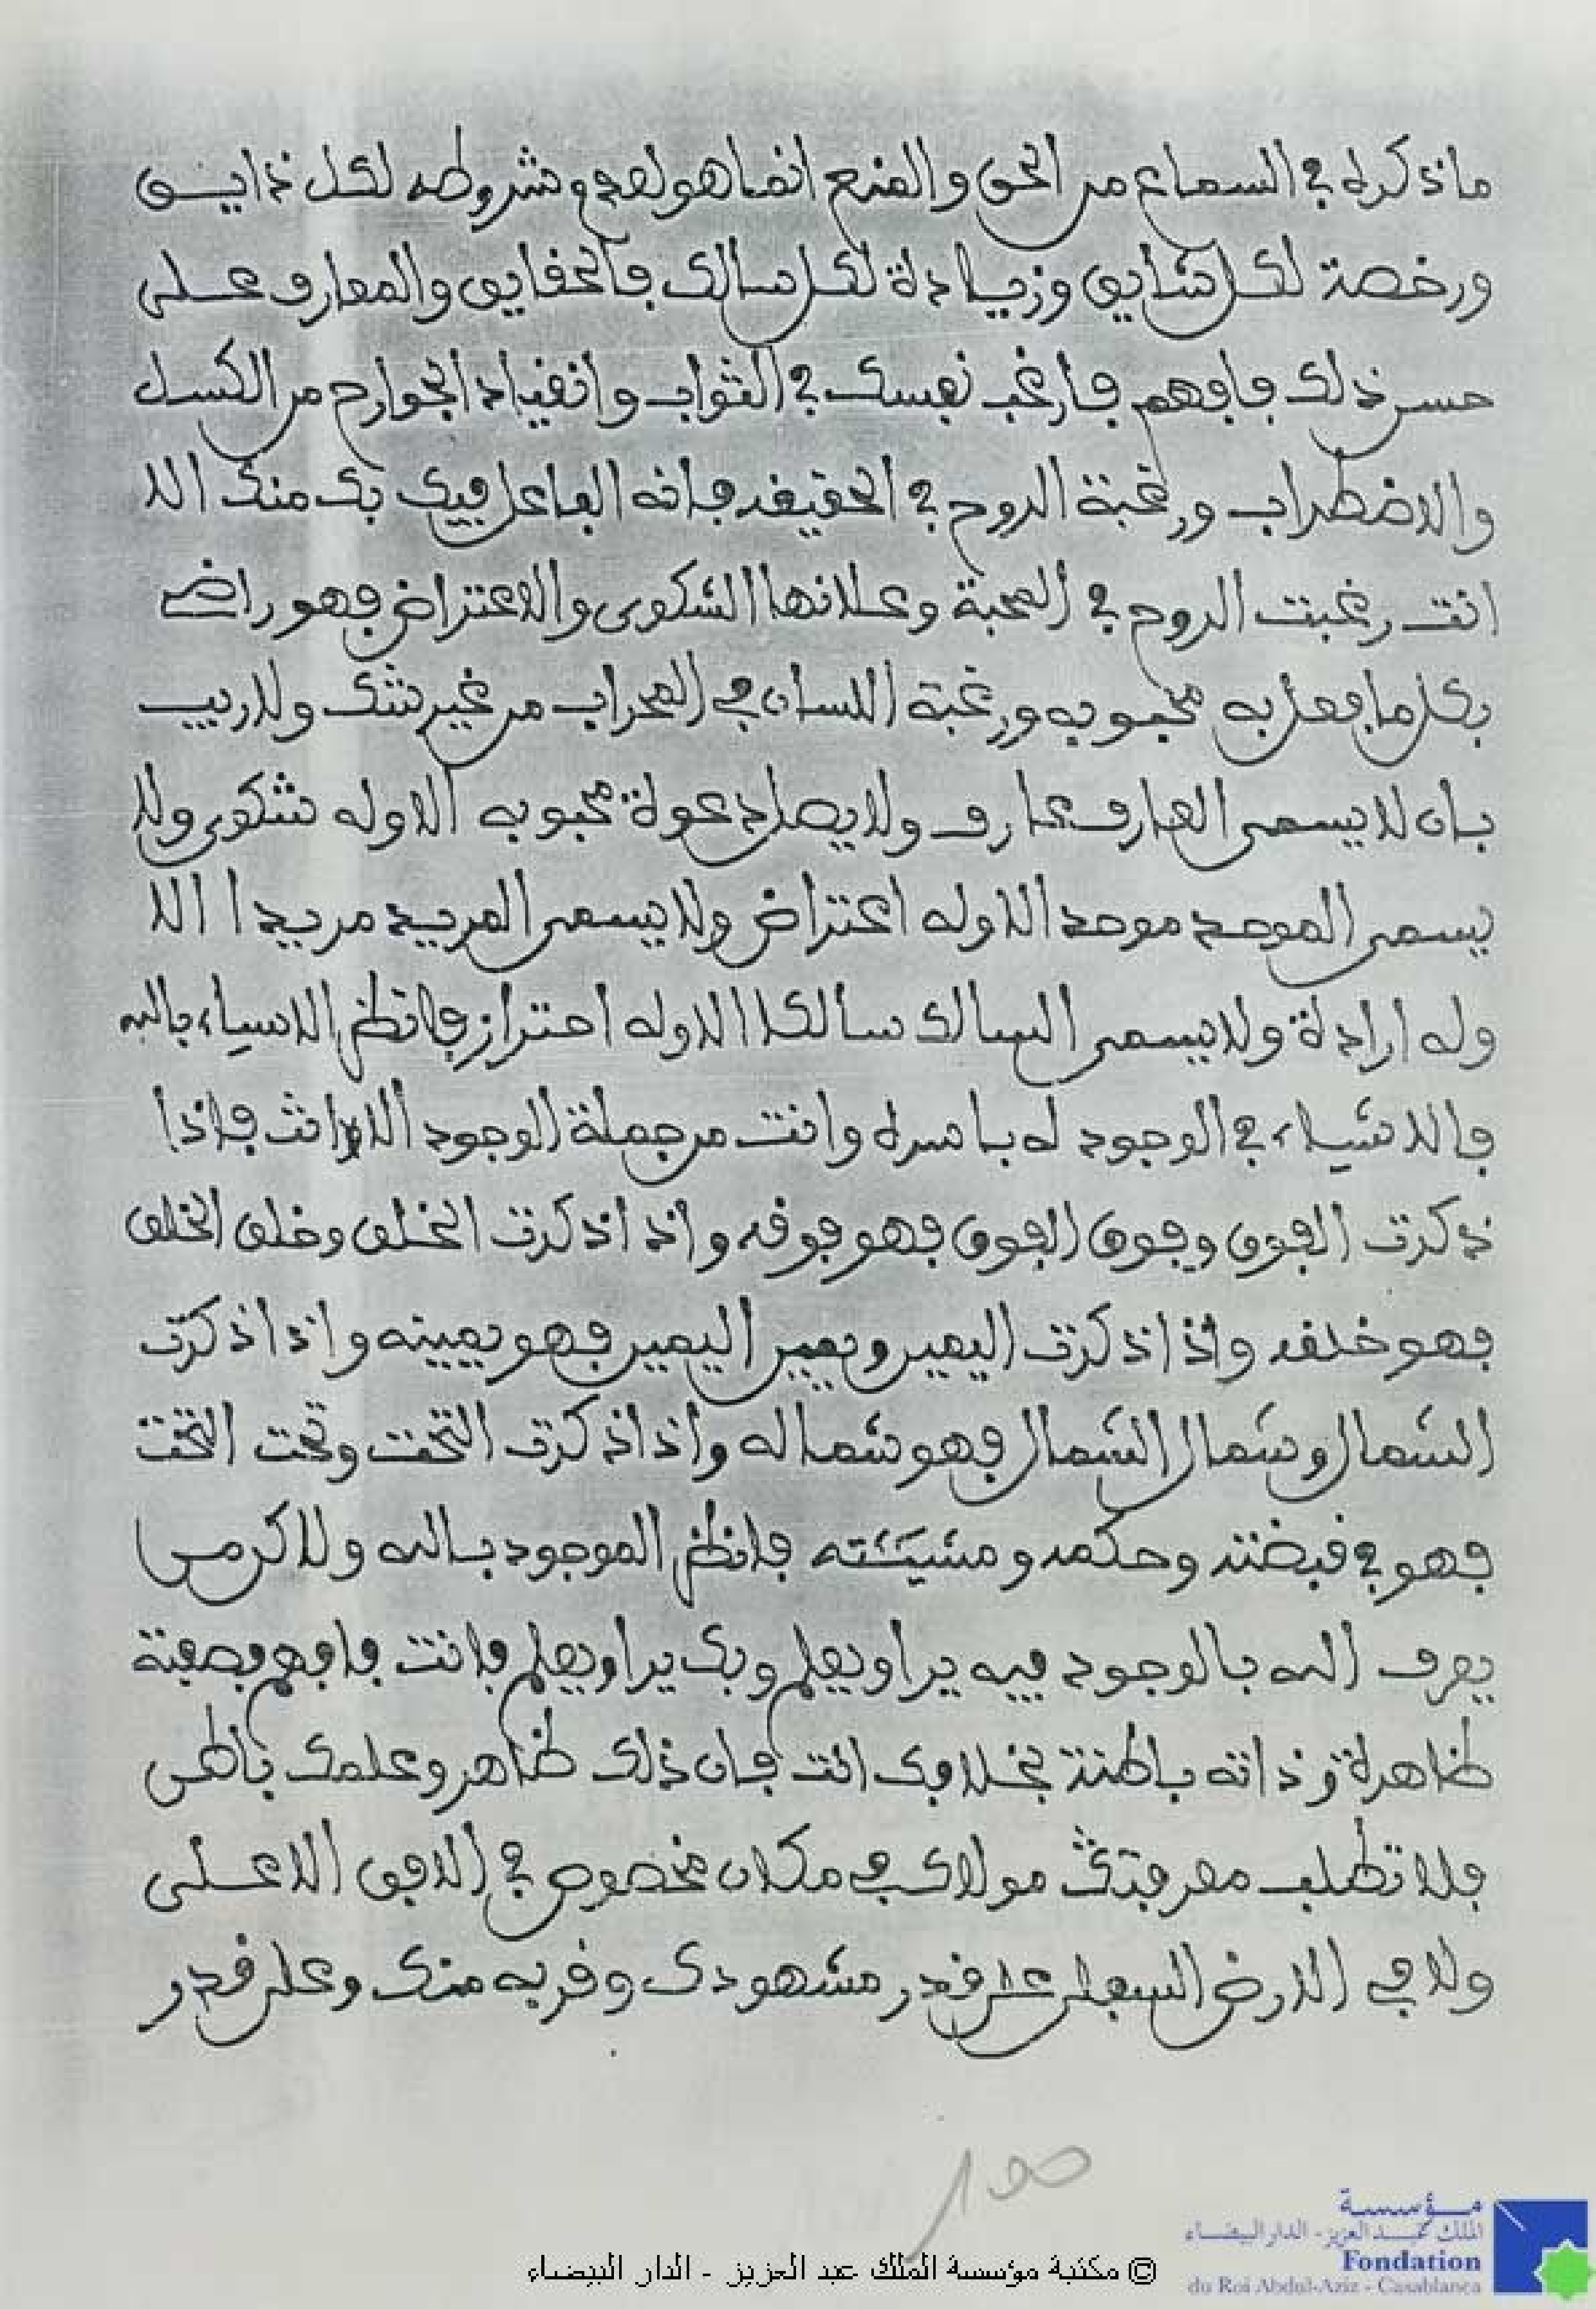 ماذكره في السماع من الحق والمنع انما هو لعدم شروطه لكل ذايق
ورخصة لكل شايق وزيادة لكل سالك فالحقايق والمعارف على
حسن ذلك فافهم فارغب نفسك في الثواب وانقياد الجوارح من الكسل
والاضطراب ورغبة الروح في الحقيقه فانه الفاعل فيك بك منك الا
انت رغبت الروح في المحبة وعلانها الشكوى والاعتراض فهو راضي
بكل ما فعل به محبوبه ورغبة اللسان في المحراب من غير شك ولا ريب
بان لا يسمى العارف عارف ولا يصل دعوة محبوبه الا وله شكوى ولا
يسمى الموحد موحد الا وله اعتراض ولا يسمى المريد مريدا الا
وله ارادة ولا يسمى السالك سالكا الا وله احتراز فانظر الاسياء بالله
فالاشياء في الوجود له باسره وانت من جملة الوجود الا وانت فاذا
ذكرت الفوق وفوق الفوق فهو فوقه واذا ذكرت الخلق وخلق الخلق
فهو خلفه واذا ذكرت اليمين ويمين اليمين فهو يمينه واذا ذكرت
الشمال وشمال الشمال فهو شماله واذا ذكرت التحت وتحت التحت
فهو في قبضته وحكمه ومشيئته فانظر الموجود بالله ولاكن من
يعرف الله بالوجود فيه يرا ويعلم وبك يرا ويعلم فانت فافهم فصفته
ظاهرة وذاته باطنة بخلافك انت فان ذلك ظاهر وعلمك باطن
فلا تطلب معرفتك مولاك في مكان مخصوص في الافق الاعلى
ولا في الارض السفلى على قدر مشهودك وقربه منك وعلى قدر
© مكتبة مؤسسة الملك عبد العزيز - الدار البيضاء
مؤسسة
الملك عبد العزيز - الدار البيضاء
Fondation
du Roi Abdul-Aziz - Casablanca